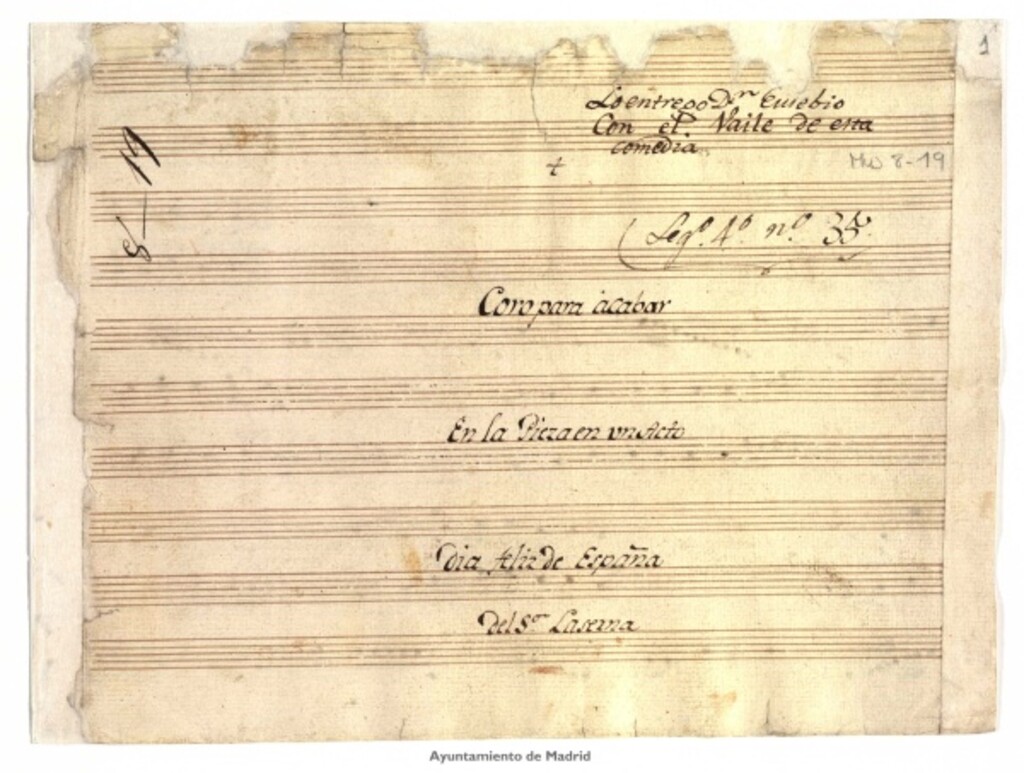 1
Lo entrego Dn. Eusebio
Con el Vaile de esta
comedia
Mus 8-19
8-19
Legº. 4º. nº. 35.
Coro para acabar
En la Pieza en un Acto
Dia feliz de España
Del Sor. Laserna
Ayuntamiento de Madrid